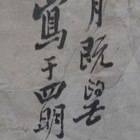 月既望
寫于四明